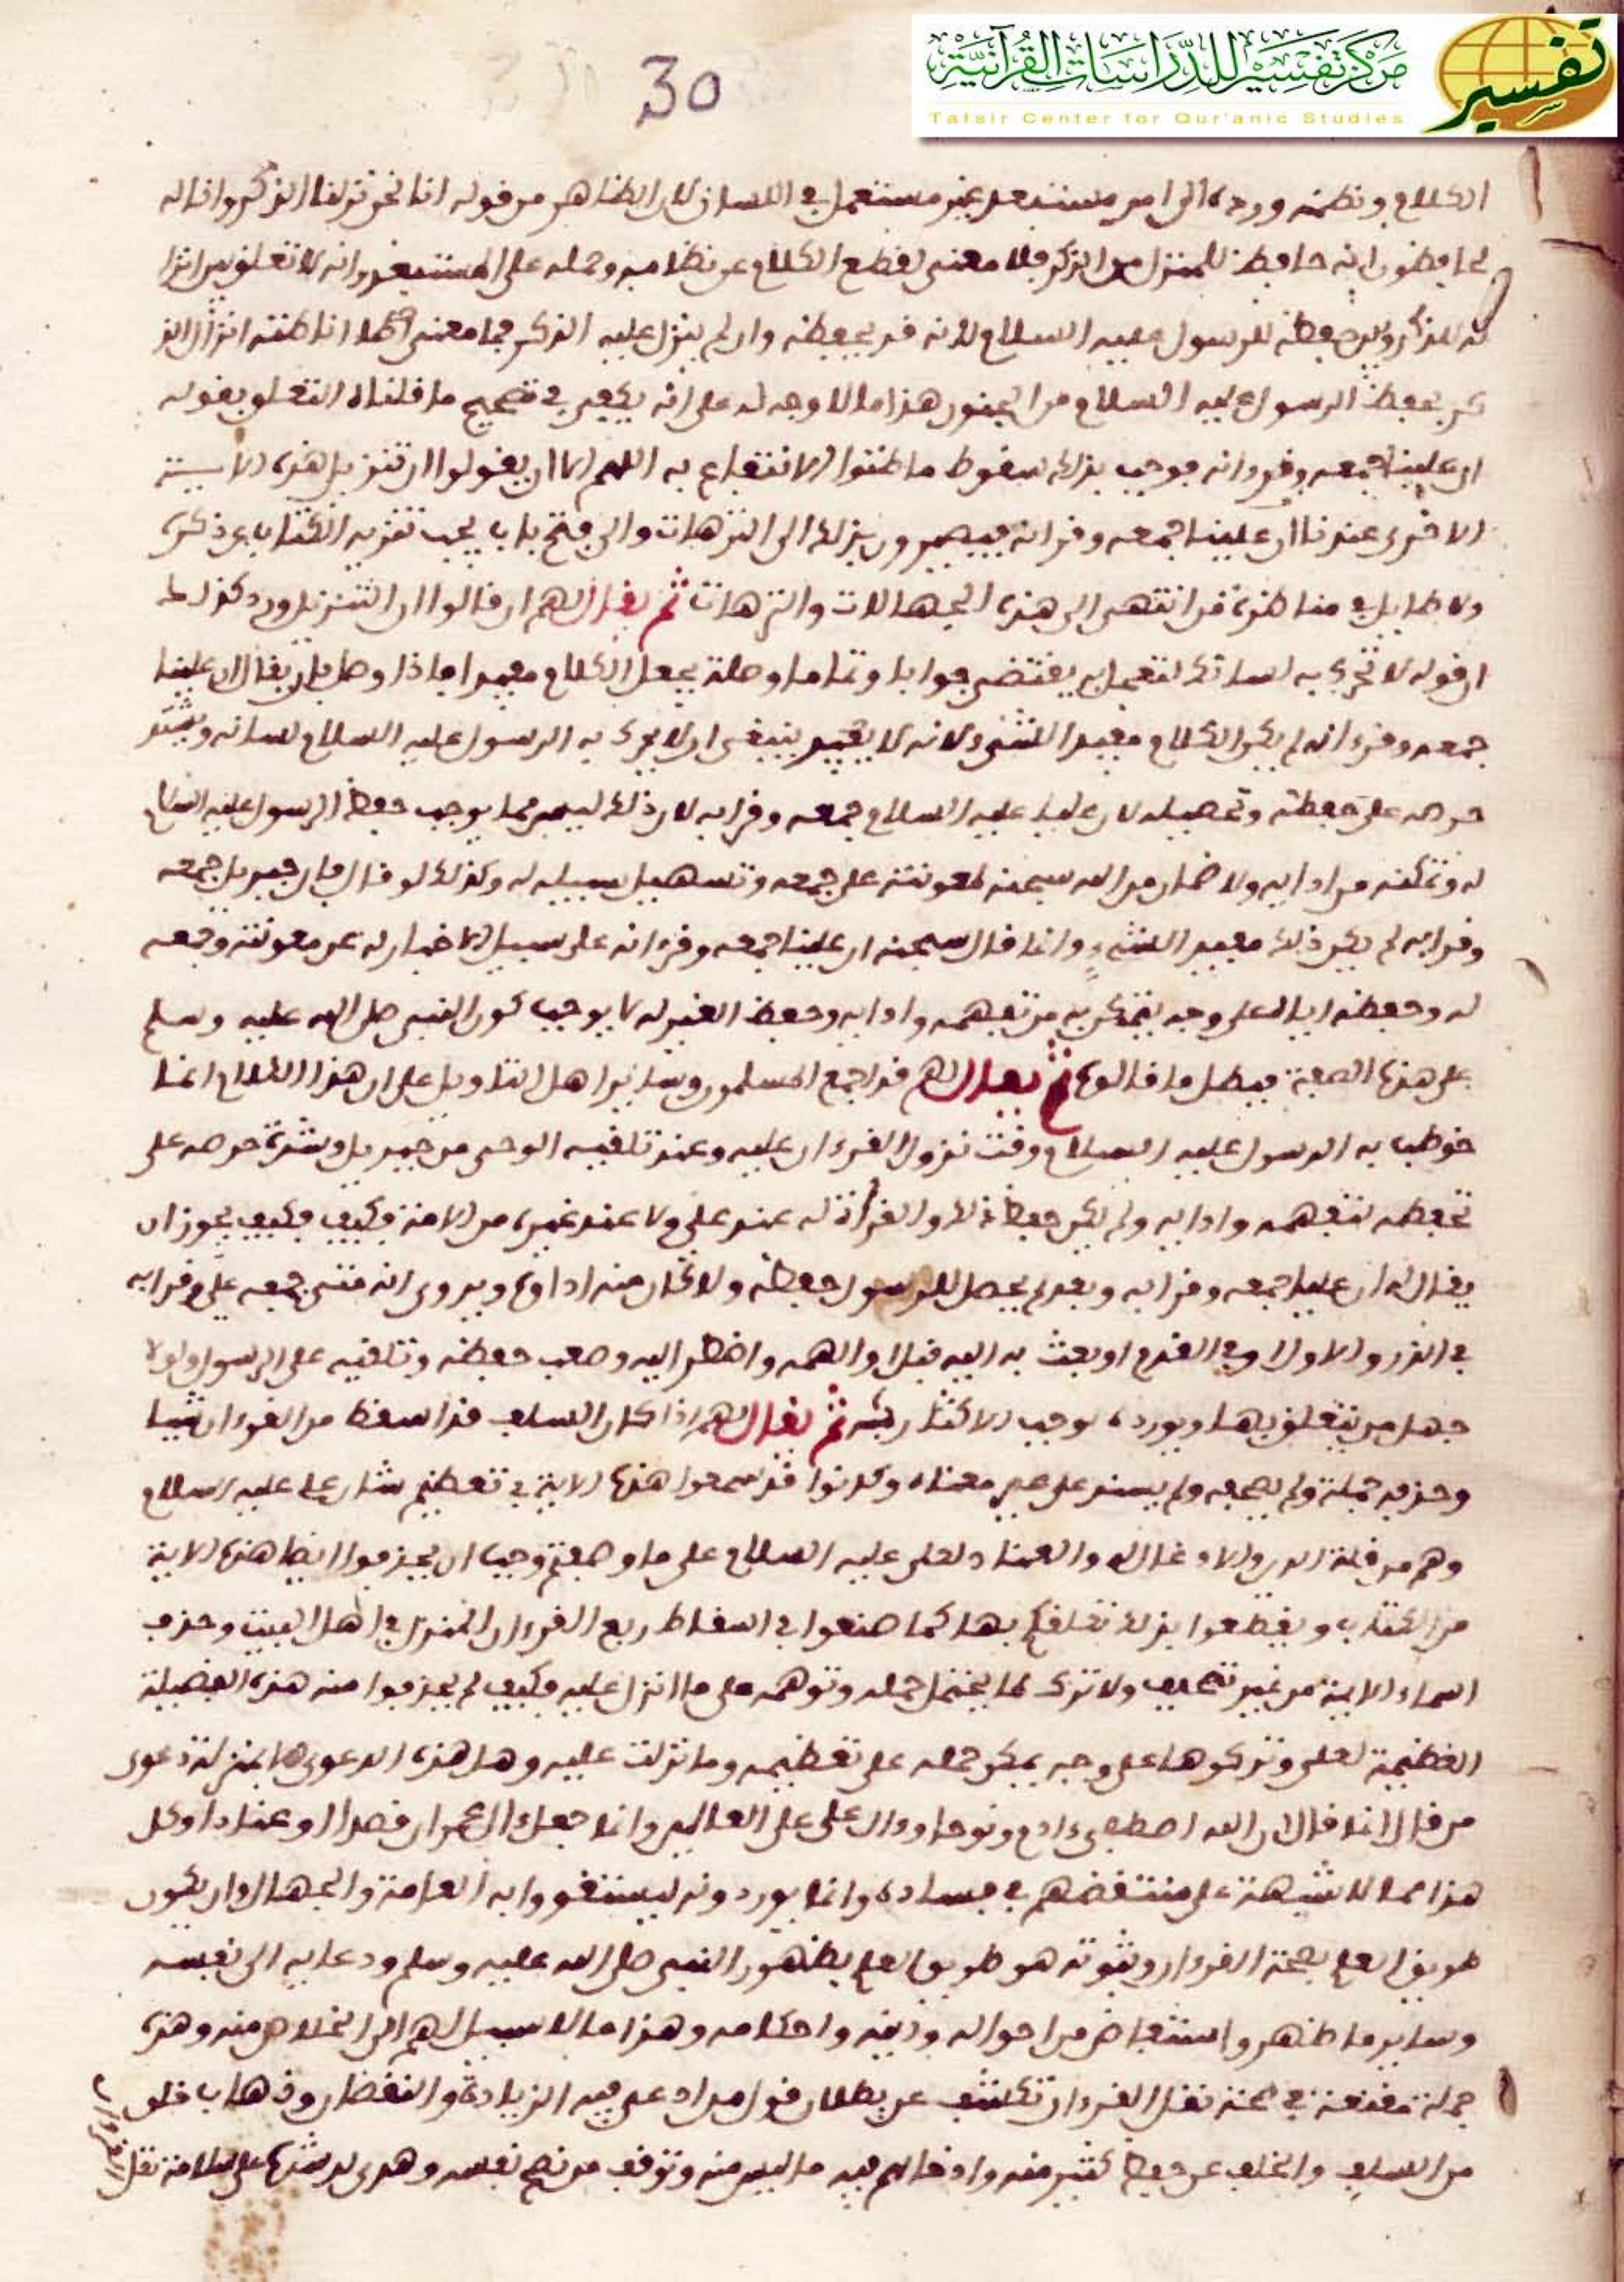 مركز تفسير للدراسات القرآنية
Tafsir Center for Qur'anic Studies
تفسير
30
الكلام ونظمه ورده الى امر مستبعد غير مستعمل في اللسان لان الظاهر من قوله انا نحن نزلنا الذكر وانا له
لحافظون انه حافظ للمنزل من الذكر فلا معنى لقطع الكلام عن نظامه وحمله على المستبعد وانه لا تعلق بين انزا
له الذكر وبين حفظه للرسول عليه السلام لانه قد يحفظه وان لم ينزل عليه الذكر فما معنى
بحفظ الرسول عليه السلام من الجنون هذا ما لا وجه له على انه يكفي في تصحيح ما قلناه التعلق بقوله
ان علينا جمعه وقرءانه فوجب بذلك سقوط ما ظنوا الانتفاع به اللهم الا ان يقولوا ان تنزيل هذه الاية
الاخرى عندنا ان عليا جمعه وقرانه فيصيرون بذلك الى الترهات والى فتح باب يجب تنزيه الكتاب عن ذكره
ولا طايل في مناظرة من انتهى الى هذه الجهالات والترهات ثم يقال لهم ان قالوا ان التنزيل ورد كذلك
ان قوله لا تحرك به لسانك لتعجل به يقتضي جوابا وتماما وصلة يجعل الكلام مفيدا فاذا وصل بان يقال ان عليا
جمعه وقرءانه لم يكن الكلام مفيدا لشيء لانه لا يفيد ينبغي ان لا يحرك به الرسول عليه السلام لسانه ويشتد
حرصه على حفظه وتحصيله لان عليا عليه السلام جمعه وقرا به لان ذلك ليس مما يوجب حفظ الرسول عليه السلام
له وتمكنه من ادايه ولا ضمان من الله سبحنه لمعونته على جمعه وتسهيل سبيله له وكذلك لو قال فان جبريل جمعه
وقرا به لم يكن ذلك مفيدا لشيء وانما قال سبحنه ان علينا جمعه وقرءانه على سبيل الاخبار له عن معونته وجمعه
له وحفظه اياه على وجه يتمكن به من تفهمه وادايه وحفظ الغير له لا يوجب كون النبي صلى الله عليه وسلم
على هذه الصفة فبطل ما قالوه ثم يقال لهم قد اجمع المسلمون وساير اهل التاويل على ان هذا الكلام انما
خوطب به الرسول عليه السلام وقت نزول القرءان عليه وعند تلقيه الوحي من جبريل وشدة حرصه على
تحفظه تفهمه وادايه ولم يكن حفظ ذلك والقراة له عند علي ولا عند غيره من الامة فكيف فكيف يجوز ان
يقال له ان عليا جمعه وقرا به وبعد لم يحصل للرسول حفظه ولا كان منه اداوه ويروى انه متى جمعه علي وقرا به
في الذرو الاول او في القدم او بعث به اليه قبل او الهمه واضطر اليه وصعب حفظه وتلقيه على الرسول ولولا
جهل من يتعلق بهذا ويورده لوجب الاكثار به ثم يقال لهم اذا كان السلف قد اسقط من القرءان شيا
وحذفه جملة ولم يصحفه ولم يسنده على غير معناه وكانوا قد سمعوا هذه الاية في تعظيم شان علي عليه السلام
وهم من قلة الدين والادغال له والعناد لعلي عليه السلام على ما وصفتم وجب ان يحذفوا ايضا هذه الاية
من الكتاب ويقطعوا بذلك تعلقكم بها كما صنعوا في اسقاط ربع القرءان المنزل في اهل البيت وحذف
اسماء الايمة من غير تصحيف ولا ترك لما يحتمل حمله وتوهمه على ما انزل عليه فكيف لم يحذفوا منه هذه الفضيلة
العظيمة لعلي وتركوها على وجه يمكن حمله على تعظيمه وما نزلت عليه وهل هذه الدعوى الا بمنزلة دعوى
من قال انما قال ان الله اصطفى ءادم ونوحا وءال علي على العالمين وانما جعل ءال عمران قصدا او عنادا وكل
هذا مما لا شبهة على منتقضهم في فساده وانما يوردونه ليستغووا به العامة والجهال وان يكون
طريق العلم بصحة القرءان وثبوته هو طريق العلم بظهور النبي صلى الله عليه وسلم ودعايه الى نفسه
وساير ما ظهر واستفاض من احواله ودينه واحكامه وهذا ما لا سبيل لهم الى الخلاص منه وهذه
جملة مقنعة في صحة نقل القرءان تكشف عن بطلان قول من ادعى فيه الزيادة والنقصان وذهاب خلق
من السلف والخلف عن حفظ كثير منه وادخالهم فيه ما ليس منه وتوقف من نصح نفسه وهدي لرشده على سلامة نقل
القرءان